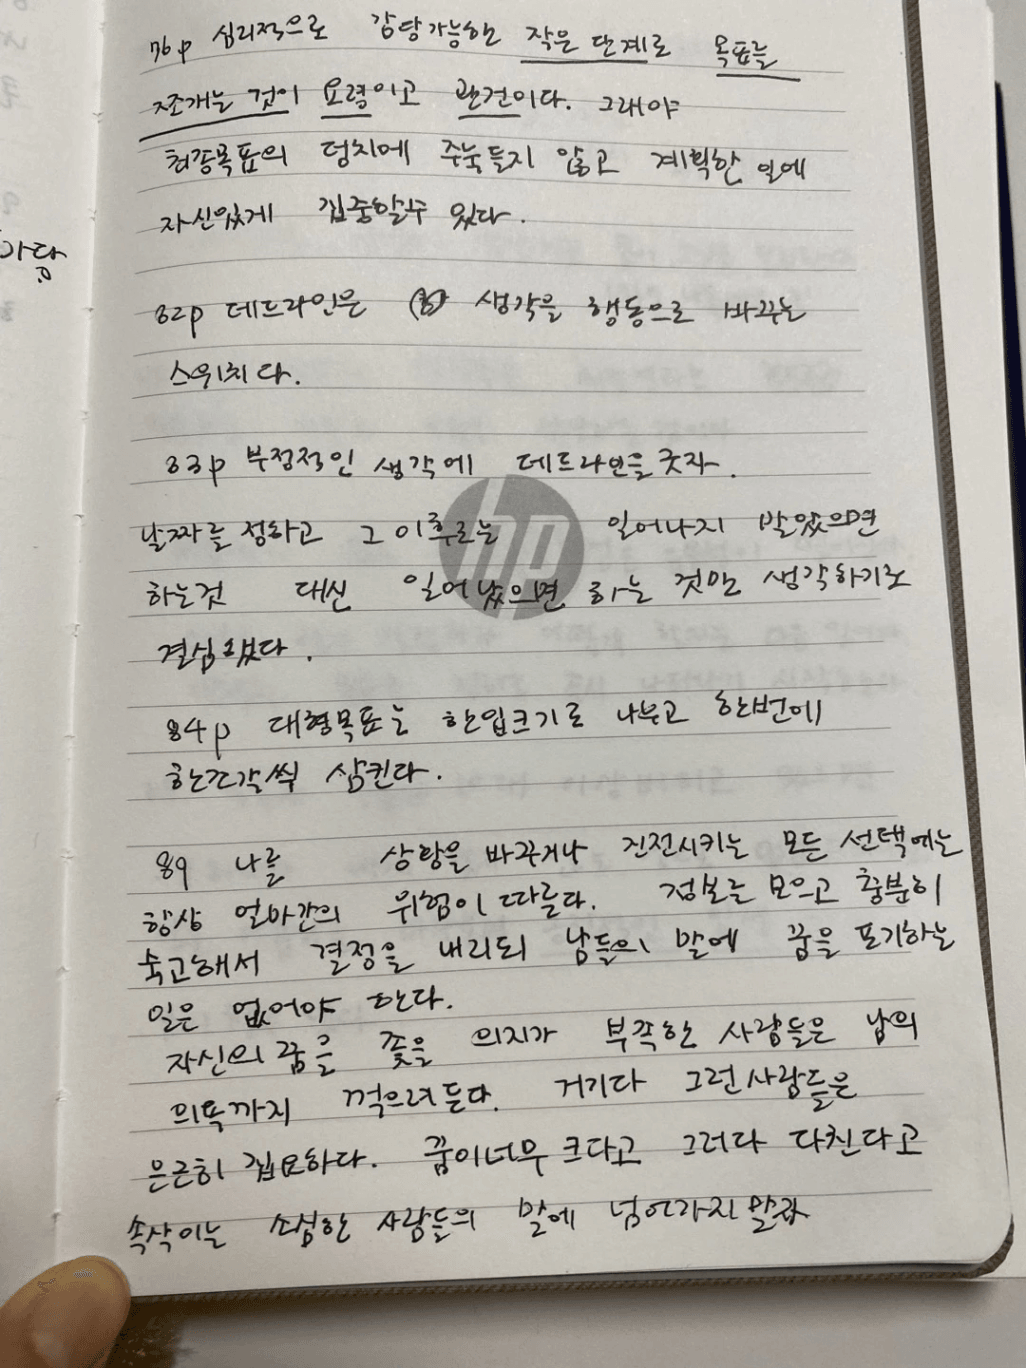 76p 심리적으로 감당가능한 작은 단계로 목표를
쪼개는 것이 요령이고 관건이다. 그래야
최종목표의 덩치에 주눅들지 않고 계획한 일에
자신있게 집중할수 있다.
82p 데드라인은 생각을 행동으로 바꾸는
스위치다.
83p 부정적인 생각에 데드라인을 긋자.
날짜를 정하고 그 이후로는 일어나지 말았으면
하는것 대신 일어났으면 하는 것만 생각하기로
결심했다.
84p 대형목표는 한입크기로 나누고 한번에
한조각씩 삼킨다.
89 나를 상황을 바꾸거나 진전시키는 모든 선택에는
항상 얼마간의 위험이 따른다. 정보를 모으고 충분히
숙고해서 결정을 내리되 남들의 말에 꿈을 포기하는
일은 없어야 한다.
자신의 꿈을 쫓을 의지가 부족한 사람들은 남의
의욕까지 꺽으려든다. 거기다 그런사람들은
은근히 집요하다. 꿈이너무 크다고 그러다 다친다고
속삭이는 소심한 사람들의 말에 넘어가지말라
hp